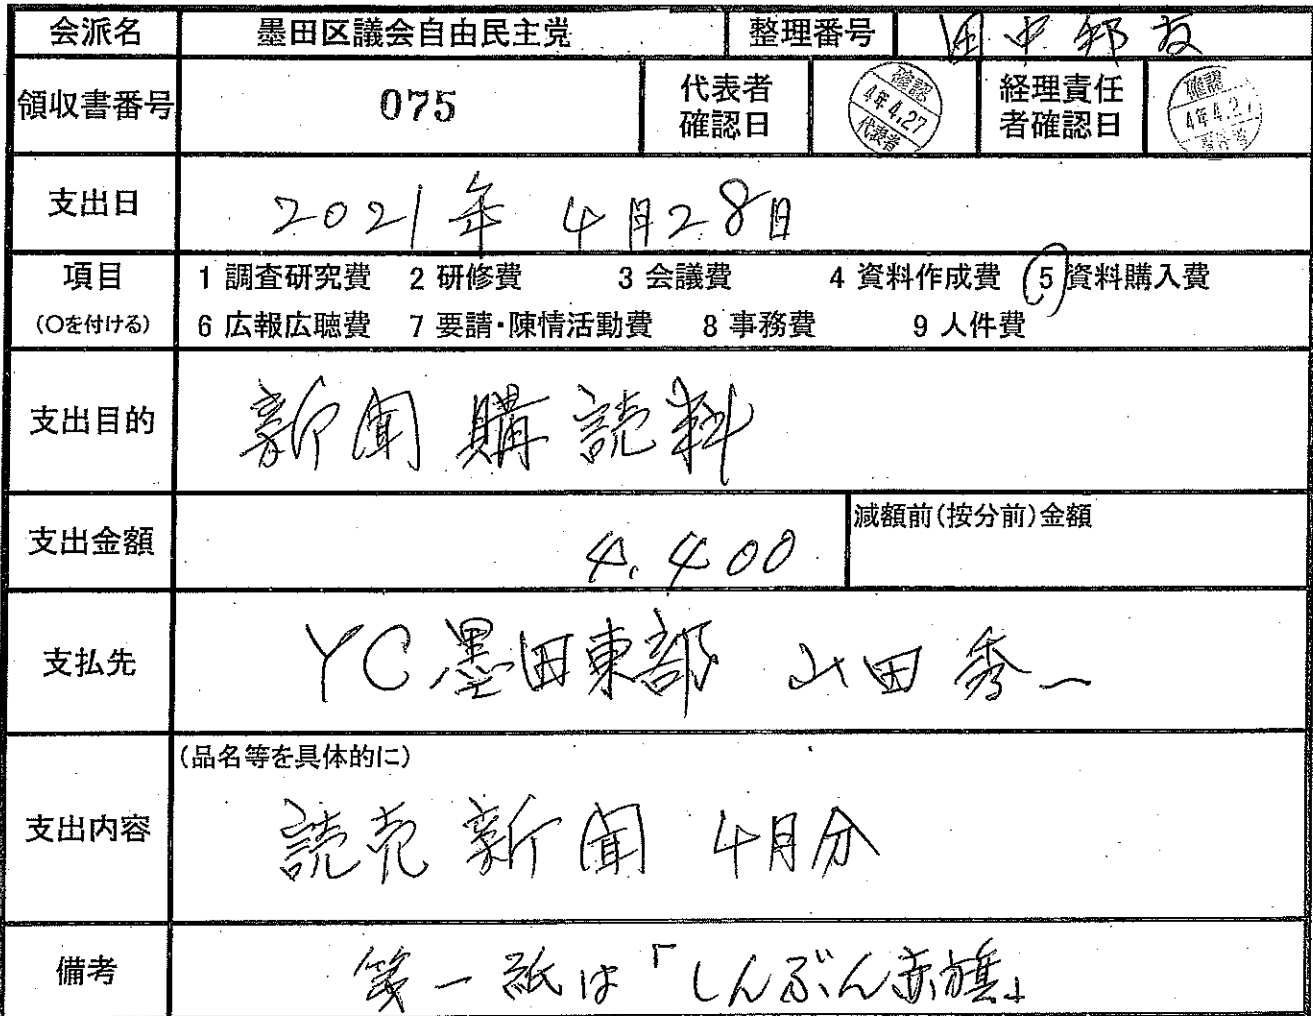 会派名 墨田区議会自由民主党 整理番号 田中邦友
領収書番号 075 代表者確認日 確認 4年4.27 代表者 経理責任者確認日 確認 4年4.27
支出日 2021年 4月28日
項目 1 調査研究費 2 研修費 3 会議費 4 資料作成費 5 資料購入費
(○を付ける) 6 広報広聴費 7 要請・陳情活動費 8 事務費 9 人件費
支出目的 新聞購読料
支出金額 4,400 減額前(按分前)金額
支払先 YC墨田東部 山田秀一
(品名等を具体的に)
支出内容 読売新聞 4月分
備考 第一紙は「しんぶん赤旗」